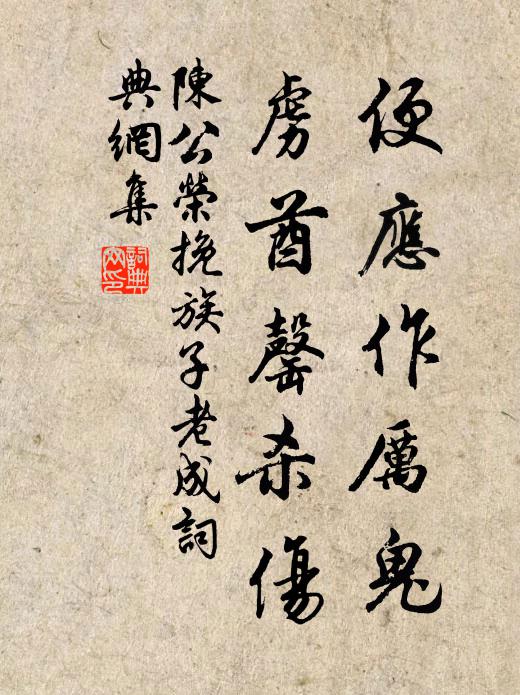 便應作厲鬼
虜酋罄杀傷
陳公榮挽族子老成詞
典網集
詞典